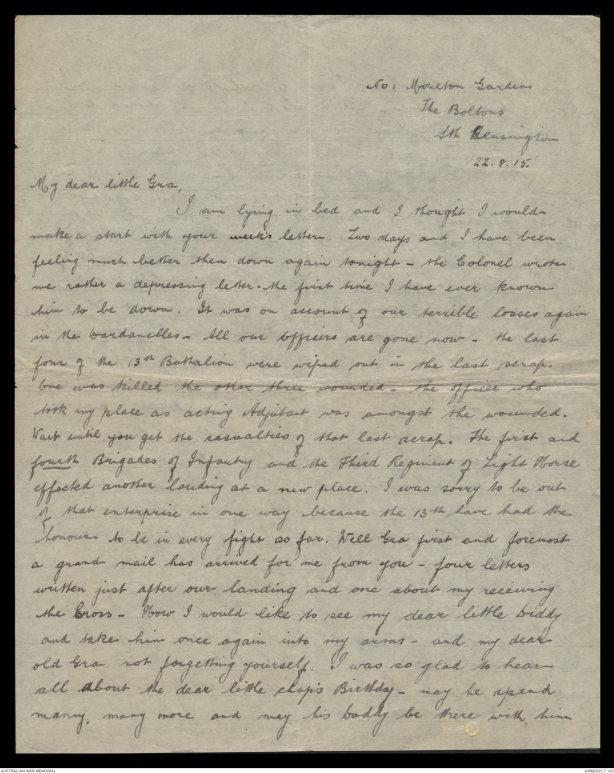 No: Moreton Gardens
The Boltons
Sth Kensington
22.8.15.
My dear little Gra,
I am lying in bed and I thought I would
make a start with your week's letter. Two days and I have been
feeling much better then down again tonight - the Colonel wrote
me rather a depressing letter - the first time I have ever known
him to be down. It was on account of our terrible losses again
in the Dardanelles - All our officers are gone now - the last
four of the 13th Battalion were wiped out in the last scrap.
One was killed the other three wounded - the officer who
took my place as acting Adjutant was amongst the wounded.
Wait until you get the casualties of that last scrap. The first and
fourth Brigades of Infantry and the Third Regiment of Light Horse
effected another landing at a new place. I was sorry to be out
of that enterprise in one way because the 13th have had the
honours to be in every fight so far. Well Gra first and foremost
a grand mail has arrived for me from you - four letters
written just after our landing and one about my receiving
the Cross - How I would like to see my dear little Diddy
and take him once again into my arms - and my dear
old Gra not forgetting yourself. I was so glad to hear
all about the dear little chap's Birthday - may he spend
many, many more and may his Daddy be there with him
AUSTRALIAN WAR MEMORIAL